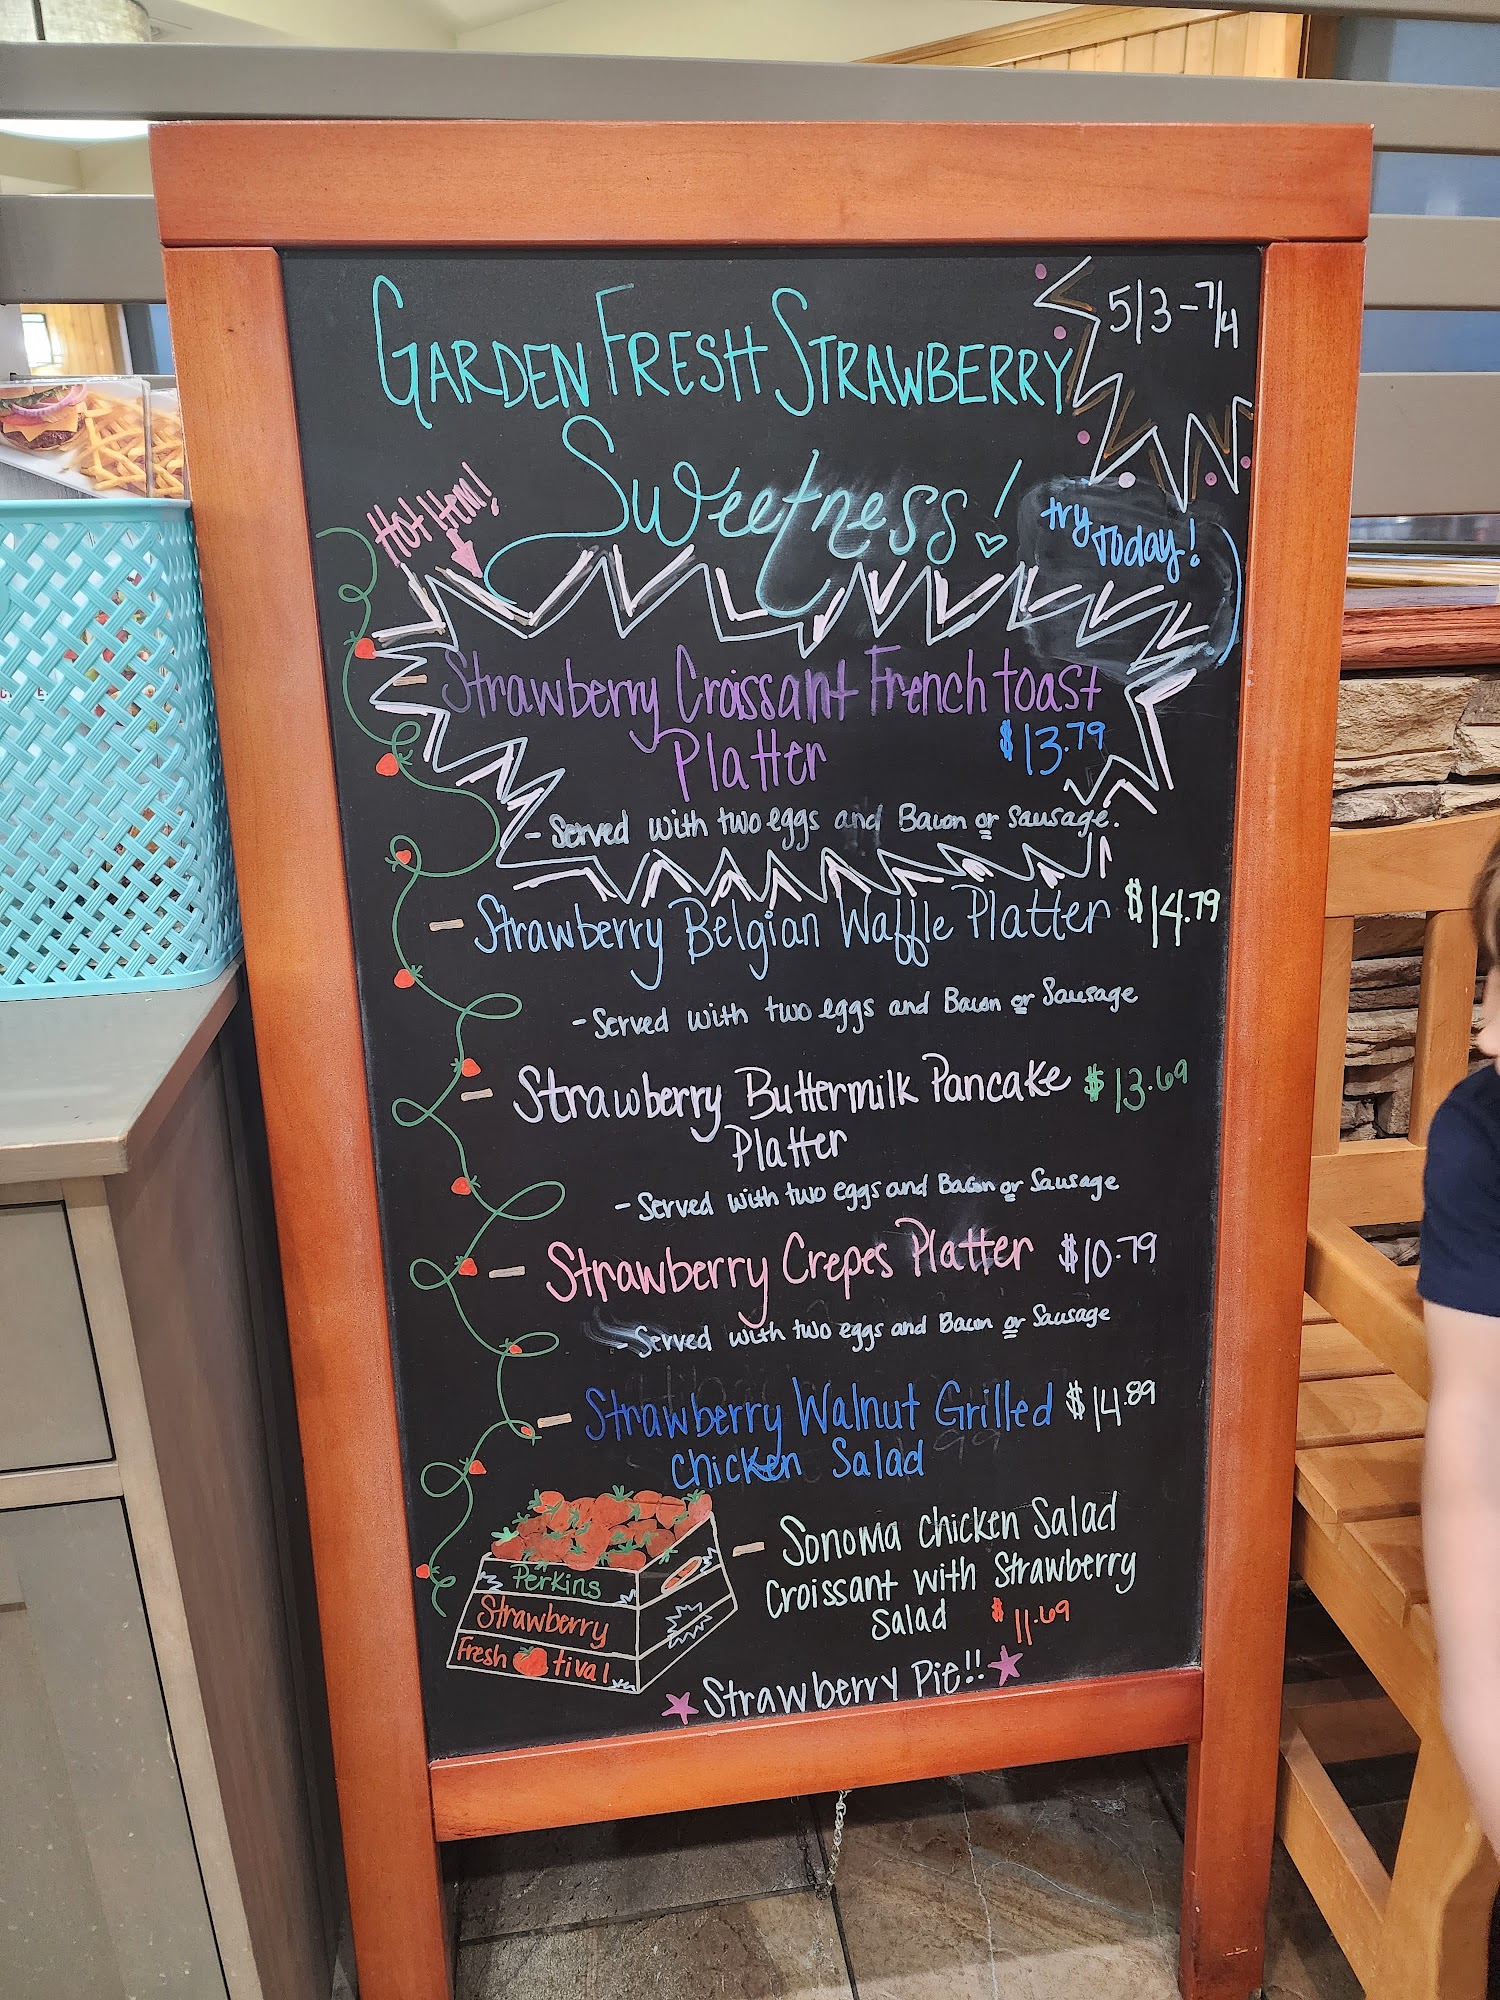 GARDEN FRESH STRAWBERRY
5/3-7/4
Sweetness!
Hot Item!
try
today!
Strawberry Croissant French toast
Platter
$13.79
- Served with two eggs and Bacon or Sausage.
- Strawberry Belgian Waffle Platter $14.79
- Served with two eggs and Bacon or Sausage
- Strawberry Buttermilk Pancake $13.69
Platter
- Served with two eggs and Bacon or Sausage
- Strawberry Crepes Platter $10.79
- Served with two eggs and Bacon or Sausage
- Strawberry Walnut Grilled $14.89
chicken Salad
- Sonoma chicken Salad
Croissant with Strawberry
Salad $11.69
Perkins
Strawberry
Fresh tival
Strawberry Pie!!